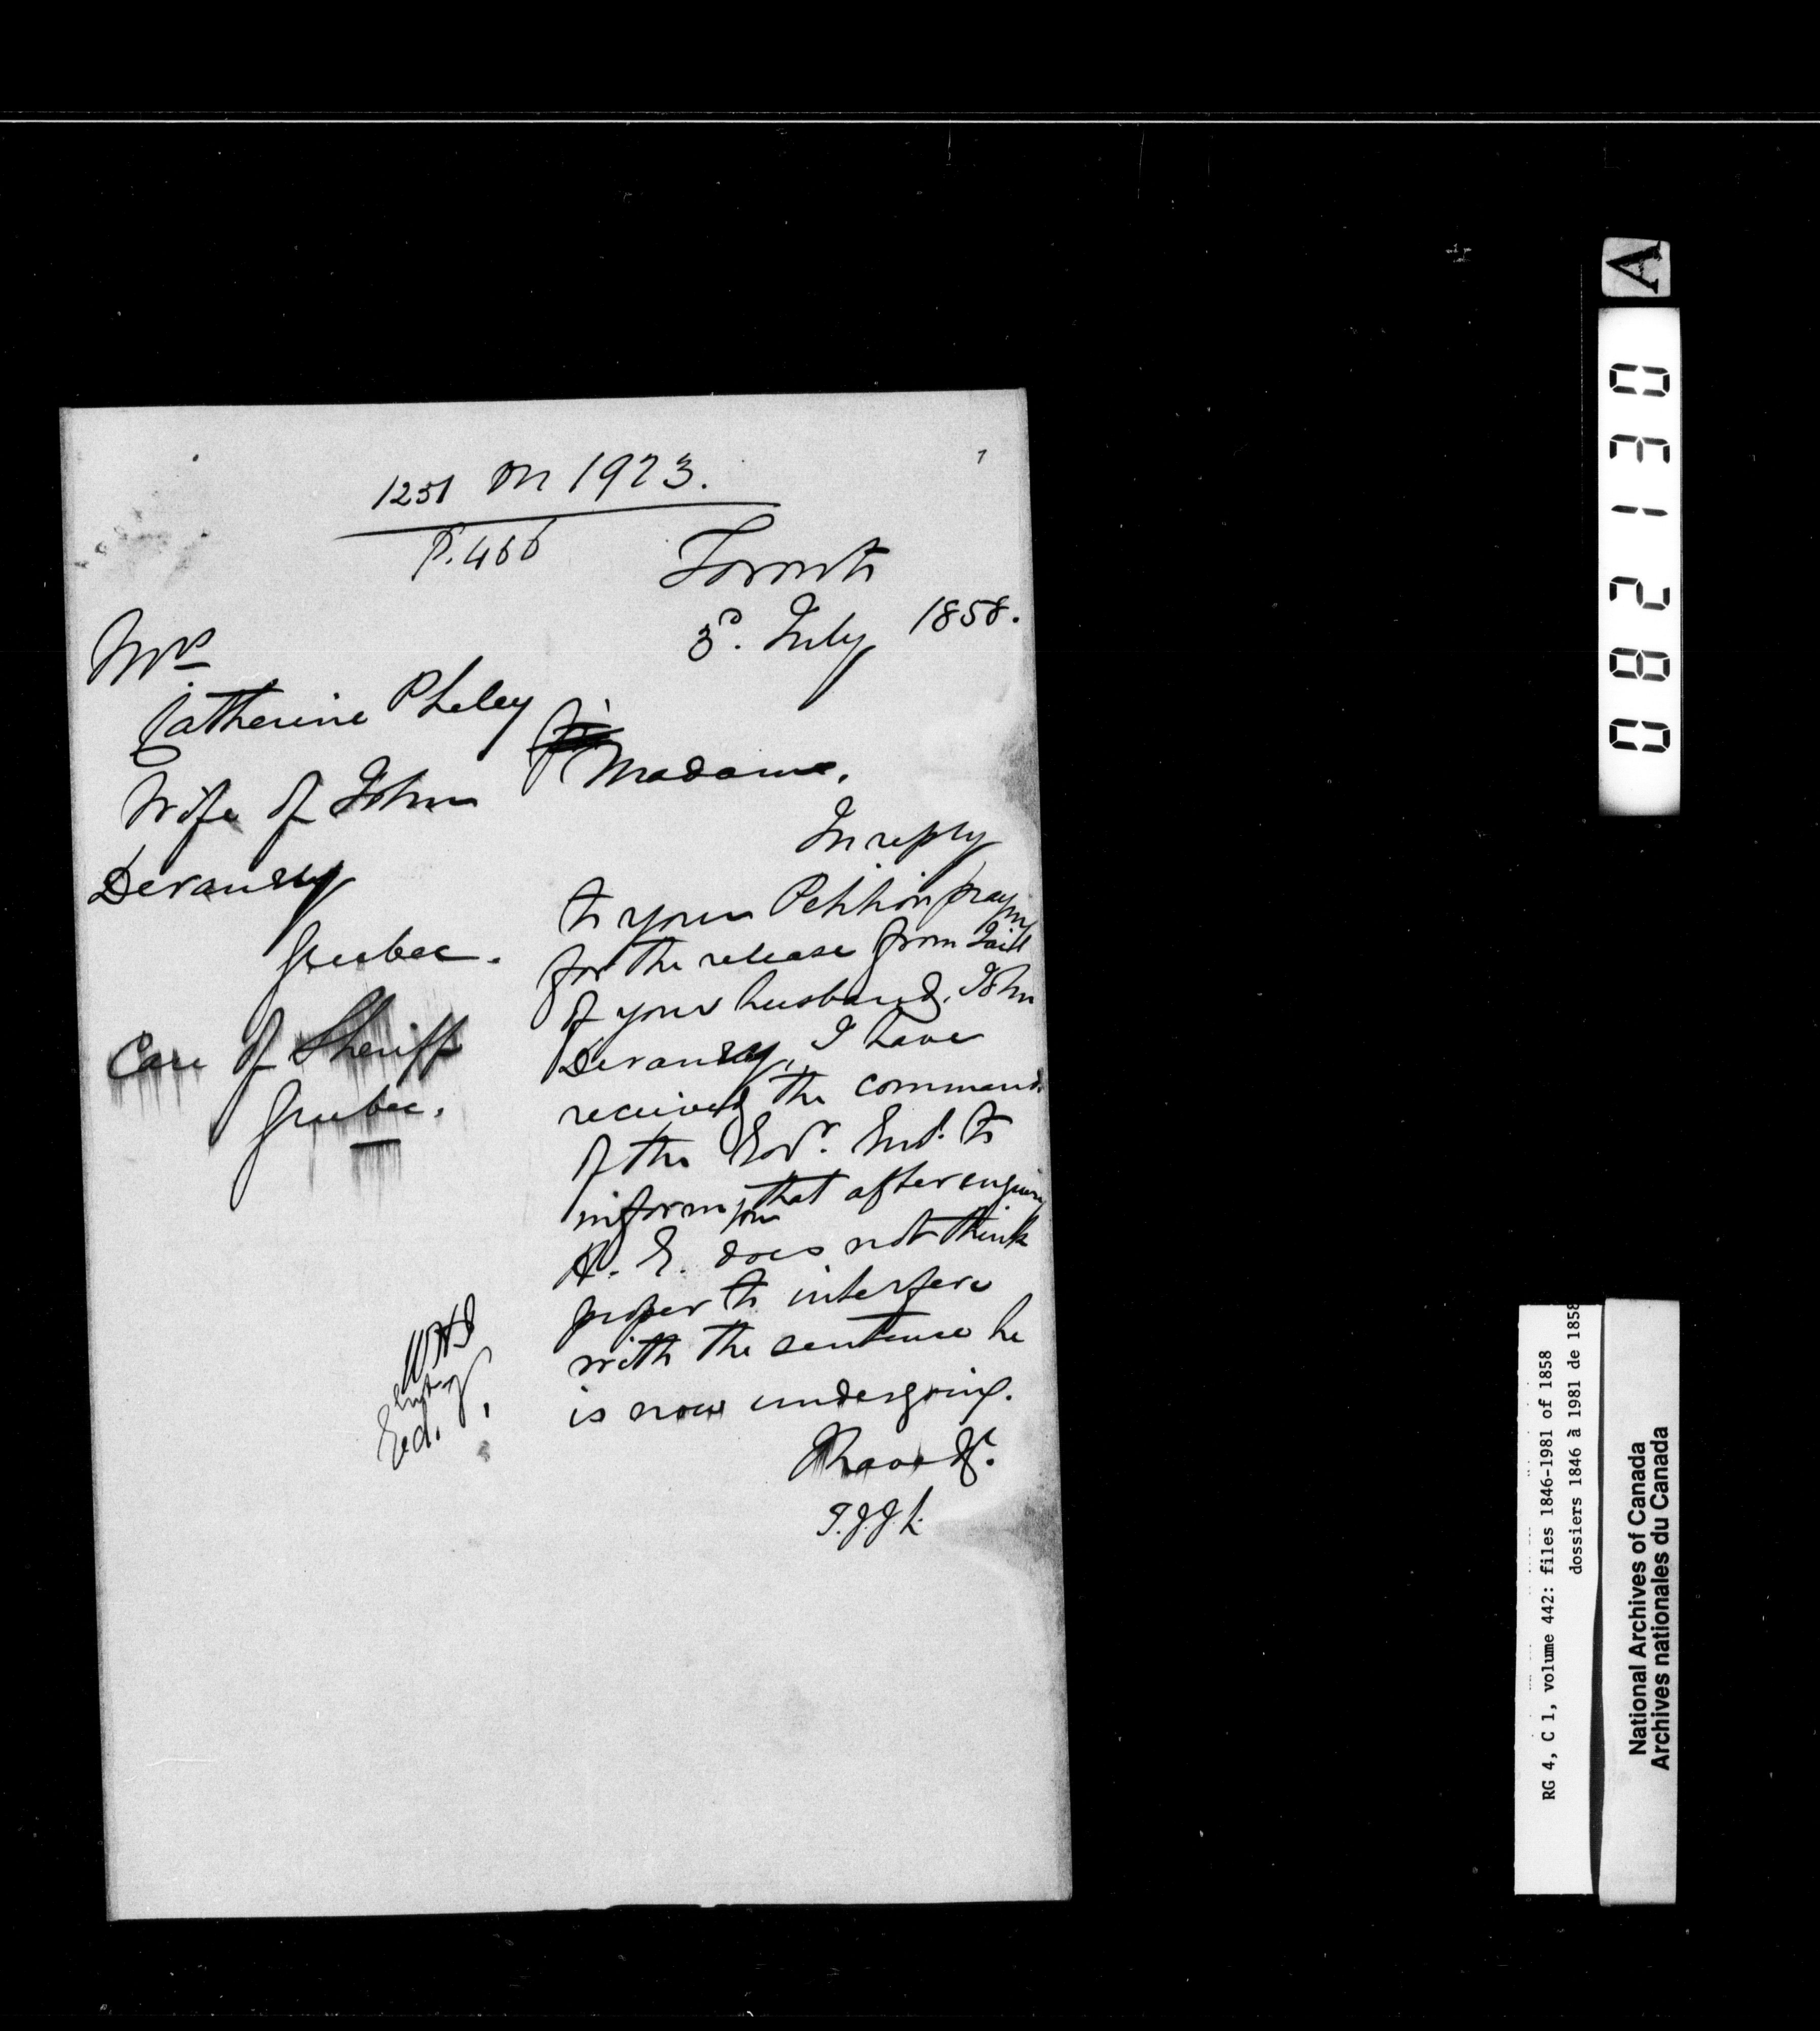 1251 on 1923.
P. 466
Toronto
3d. July 1858.
Mrs
Catherine Pheley
Wife of John
Devaney
Quebec.
Care of Sheriff
Quebec.
Madame,
In reply
to your Petition praying
for the release from Gaol
of your husband, John
Devaney, I have
received the commands
of the Govr. Genl. to
inform you that after enquiry
H. E. does not think
proper to interfere
with the sentence he
is now undergoing.
I have &c.
T.J.J.L.
Ent.
A
082130
RG 4, C 1, volume 442: files 1846-1981 of 1858
dossiers 1846 à 1981 de 1858
National Archives of Canada
Archives nationales du Canada